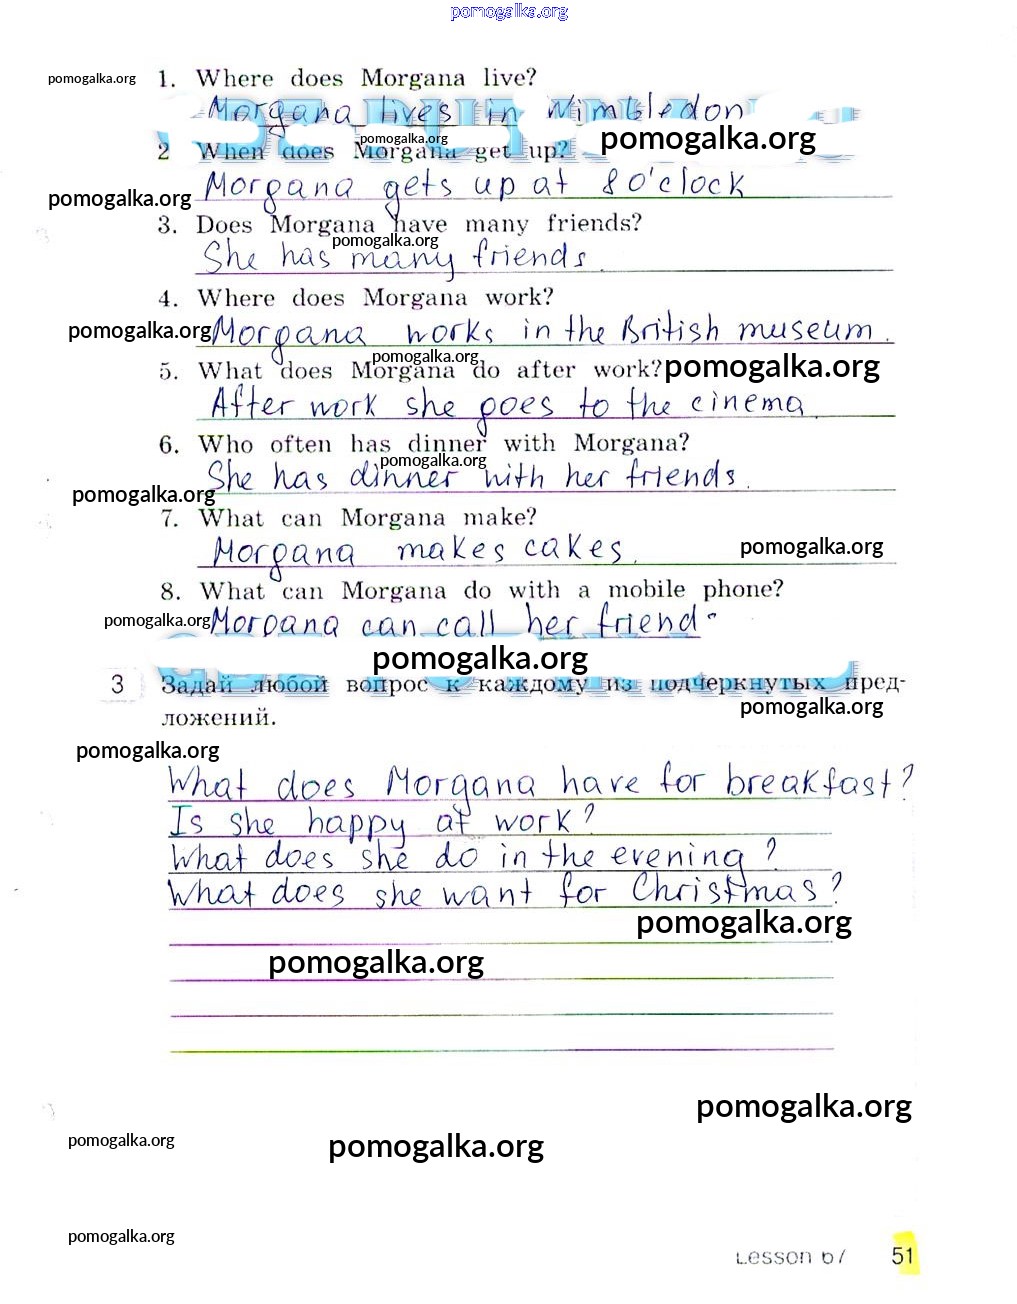 pomogalka.org
pomogalka.org 1. Where does Morgana live?
Morgana lives in Wimbledon
pomogalka.org pomogalka.org
2 When does Morgana get up?
Morgana gets up at 8 o'clock
pomogalka.org
3. Does Morgana have many friends?
pomogalka.org
She has many friends.
4. Where does Morgana work?
pomogalka.org Morgana works in the British museum.
pomogalka.org
5. What does Morgana do after work? pomogalka.org
After work she goes to the cinema.
6. Who often has dinner with Morgana?
pomogalka.org
She has dinner with her friends.
pomogalka.org
7. What can Morgana make?
Morgana makes cakes. pomogalka.org
8. What can Morgana do with a mobile phone?
pomogalka.org Morgana can call her friend
pomogalka.org
3 Задай любой вопрос к каждому из подчеркнутых пред-
ложений.
pomogalka.org
pomogalka.org
What does Morgana have for breakfast?
Is she happy at work?
What does she do in the evening?
What does she want for Christmas?
pomogalka.org
pomogalka.org
pomogalka.org
pomogalka.org
pomogalka.org
pomogalka.org
Lesson 67 51